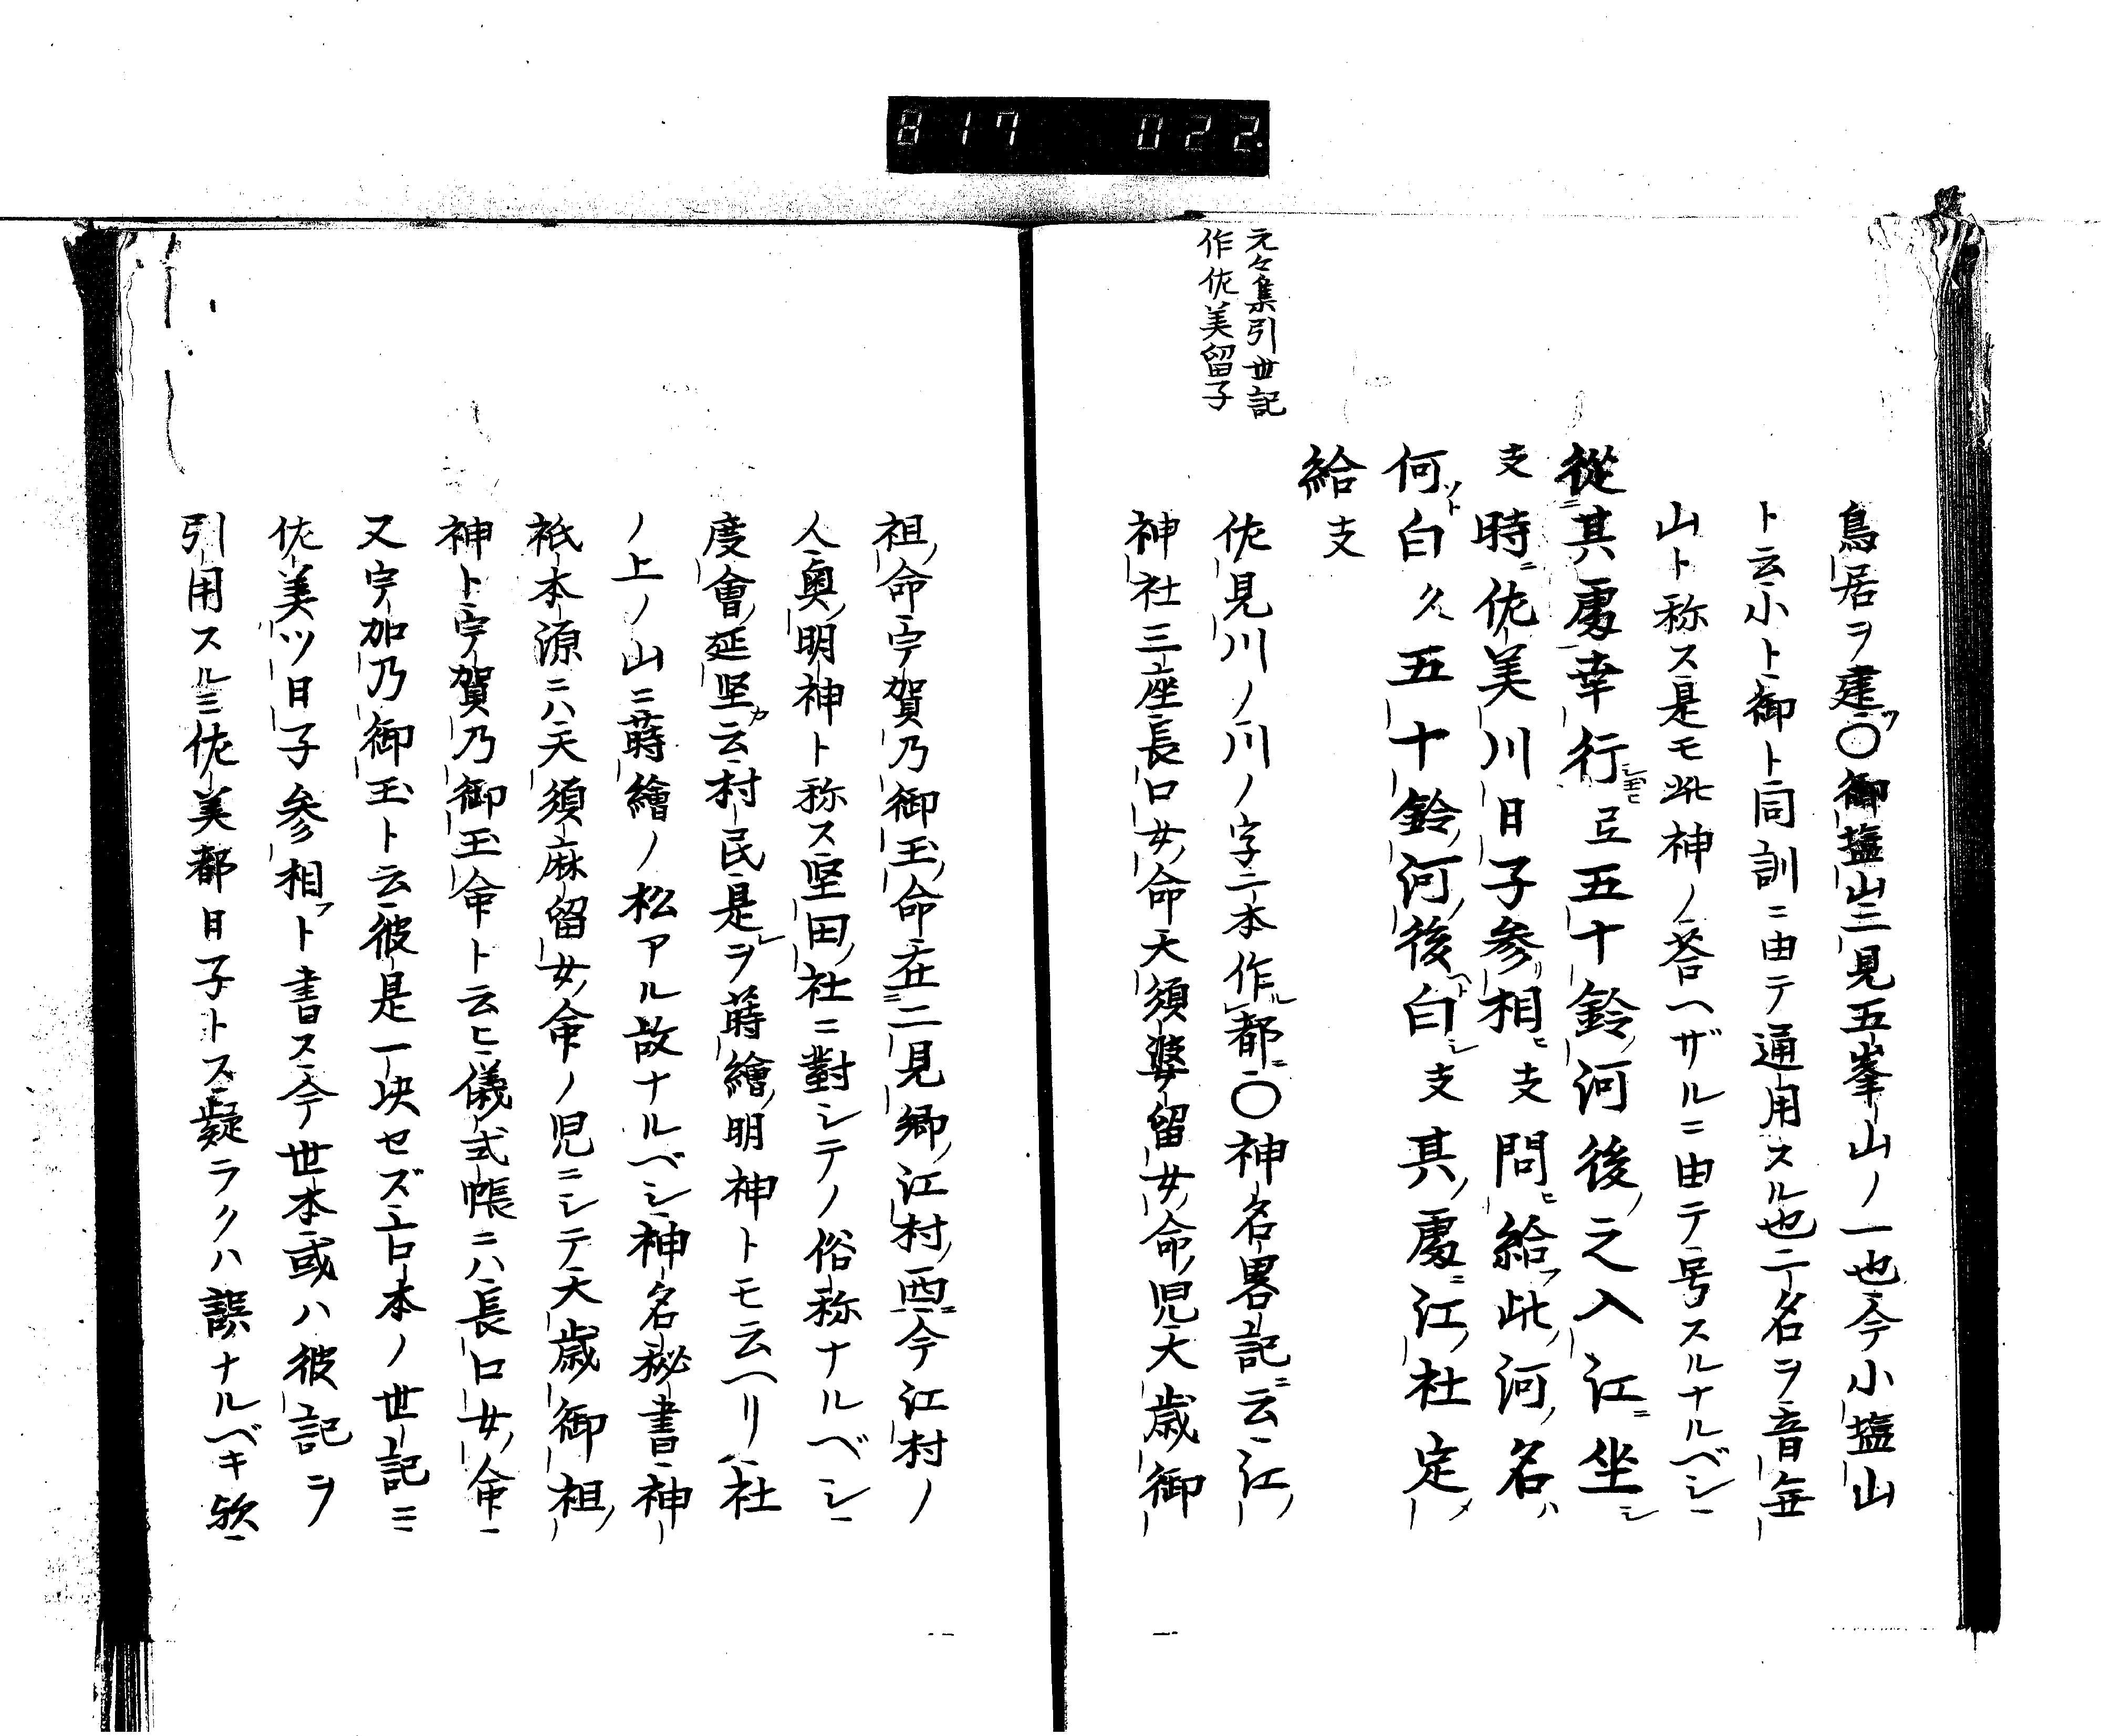 817 022
元々集引世記
作佐美留子
鳥居ヲ建ツ〇御塩山二見五峯山ノ一也今小塩山
ト云小ト御ト同訓ニ由テ通用スル也二名ヲ音無
山ト称ス是モ此神ノ荅ヘザルニ由テ号スルナルベシ
從其處幸行シ玉ヒ弖五十鈴河後之入江ニ坐シ
支時ニ佐美川日子参相ヒ支問ヒ給フ此河ノ名ハ
何ソト白久五十鈴河後ト白シ支其處ニ江社定メ
給支
佐見川ノ川ノ字一本作ル都ニ〇神名畧記ニ云江
神社三座長口女命天須婆留女命児大歳御
祖命宇賀乃御玉命在二見郷江村西ニ今江村ノ
人奥明神ト称ス堅田社ニ對シテノ俗称ナルベシ
度會延坚カ云村民是レヲ蒔繪明神トモ云ヘリ社
ノ上ノ山ニ蒔繪ノ松アル故ナルベシ神名秘書神
祇本源ニハ天須麻留女命ノ児ニシテ大歳御祖
神ト宇賀乃御玉命ト云ヒ儀式帳ニハ長口女命
又宇加乃御玉ト云彼是一决セズ古本ノ世記ニ
佐美ツ日子参相フト書ス今世本或ハ彼記ヲ
引用スルニ佐美都日子トス疑ラクハ誤ナルベキ欤